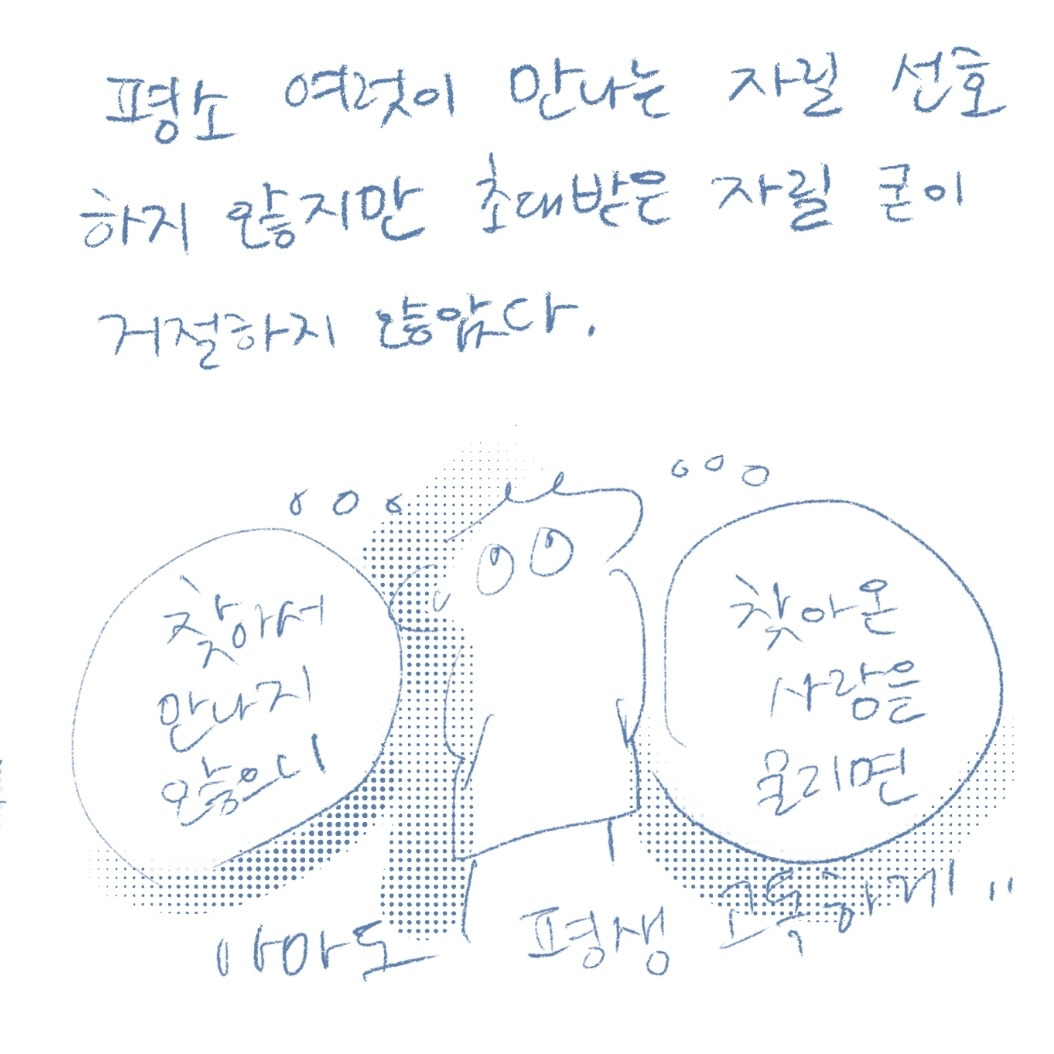 평소 여럿이 만나는 자릴 선호
하지 않지만 초대받은 자릴 굳이
거절하지 않았다.
찾아서
만나지
않으니
찾아온
사람을
물리면
아마도 평생 고독하게"